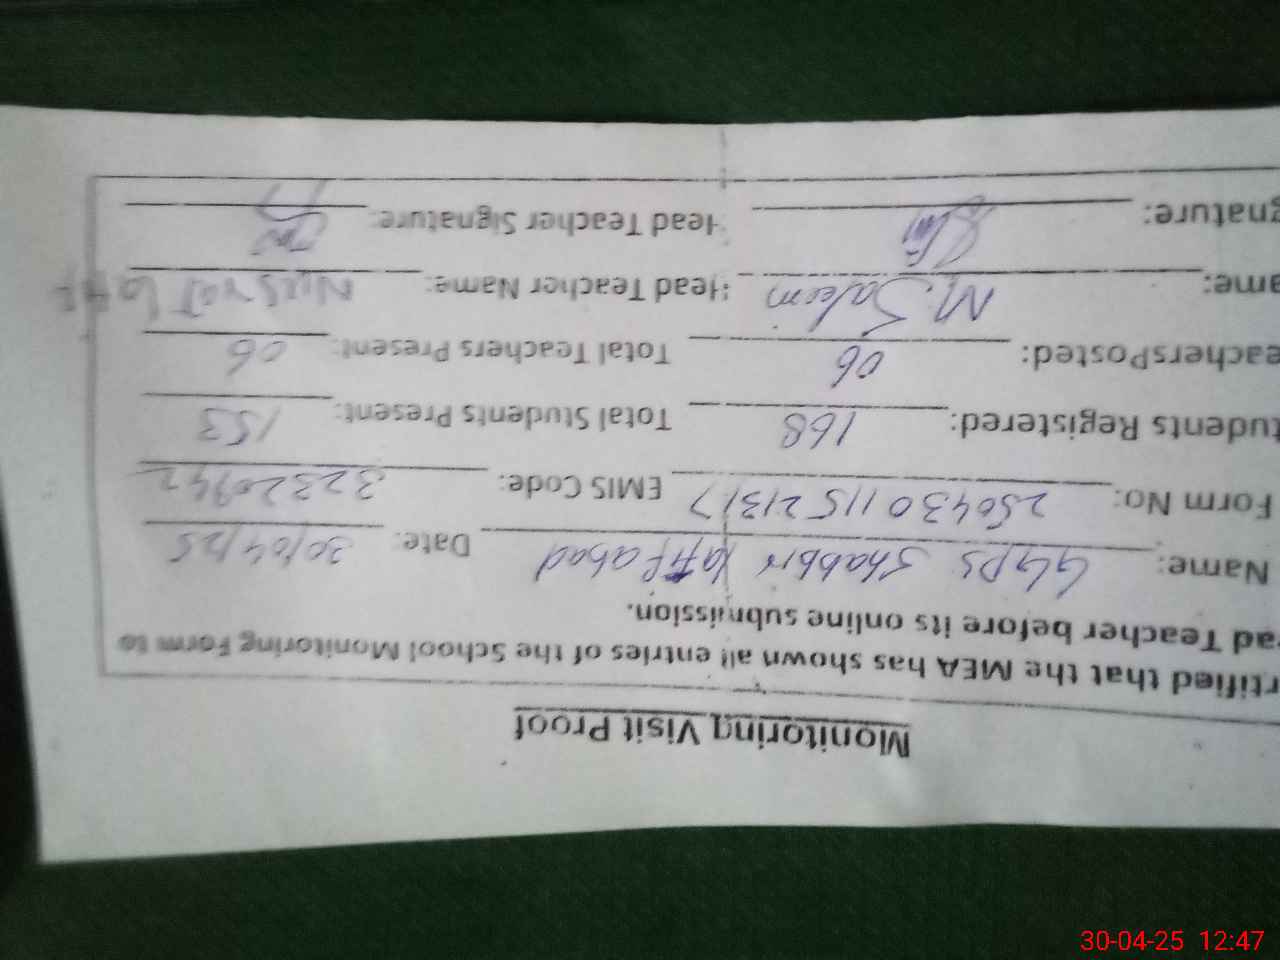 Monitoring Visit Proof
rtified that the MEA has shown all entries of the School Monitoring Form to
ad Teacher before its online submission.
Name: GGPS Shabbir Latifabad Date: 30/04/25
Form No: 25043011521317 EMIS Code: 32320942
tudents Registered: 168 Total Students Present: 153
eachersPosted: 06 Total Teachers Present: 06
ame: M. Saleem Head Teacher Name: Nusrat
gnature: Head Teacher Signature:
30-04-25 12:47